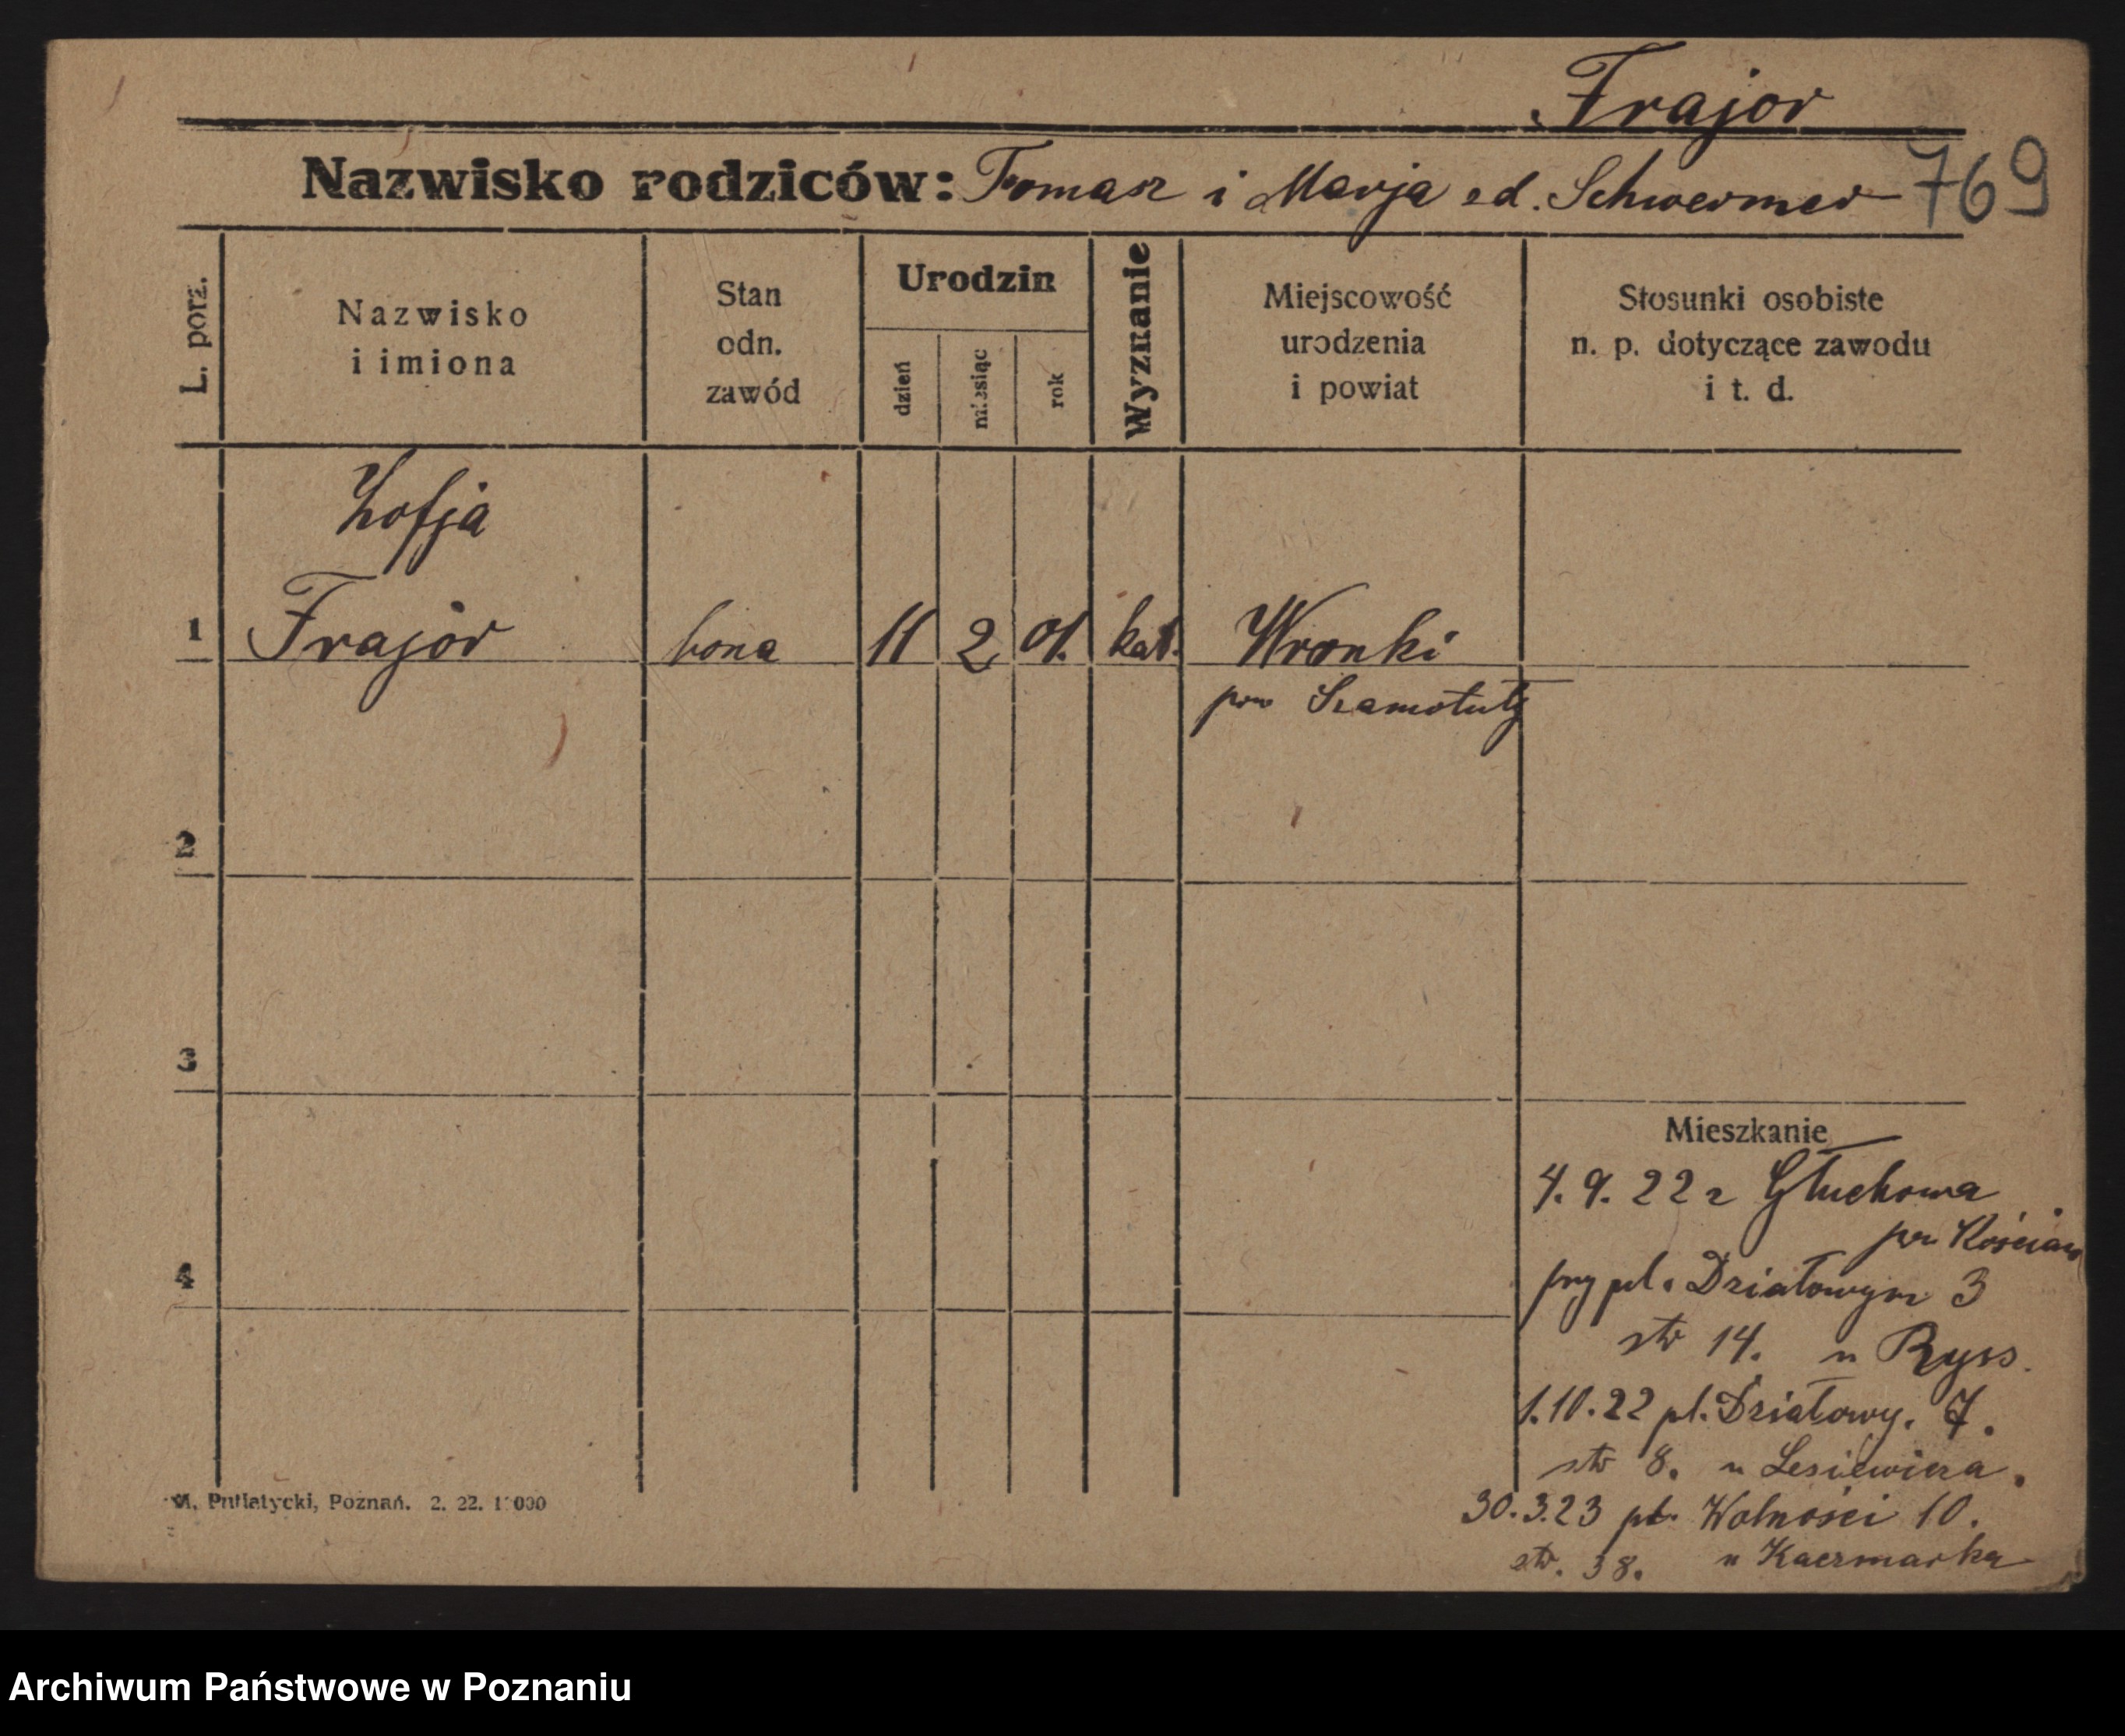 Frajor
Nazwisko rodziców: Tomasz i Marja zd. Schwermer 769
L. porz.
Nazwisko
i imiona
Stan
odn.
zawód
Urodzin
dzień
miesiąc
rok
Wyznanie
Miejscowość
urodzenia
i powiat
Stosunki osobiste
n. p. dotyczące zawodu
i t. d.
Zofja
1 Frajór bona 11 2 01. kat. Wronki
pow Szamotuły
2
3
4
Mieszkanie
4. 9. 22 z Głuchowa
pow Kościan
przy pl. Działowym 3
str 14. u Ryss.
1.10.22 pl. Działowy. 7.
str 8. u Lesiewicza.
30.3.23 pl. Wolności 10.
str. 38. u Kaczmarka
M. Putiatycki, Poznań. 2. 22.
Archiwum Państwowe w Poznaniu